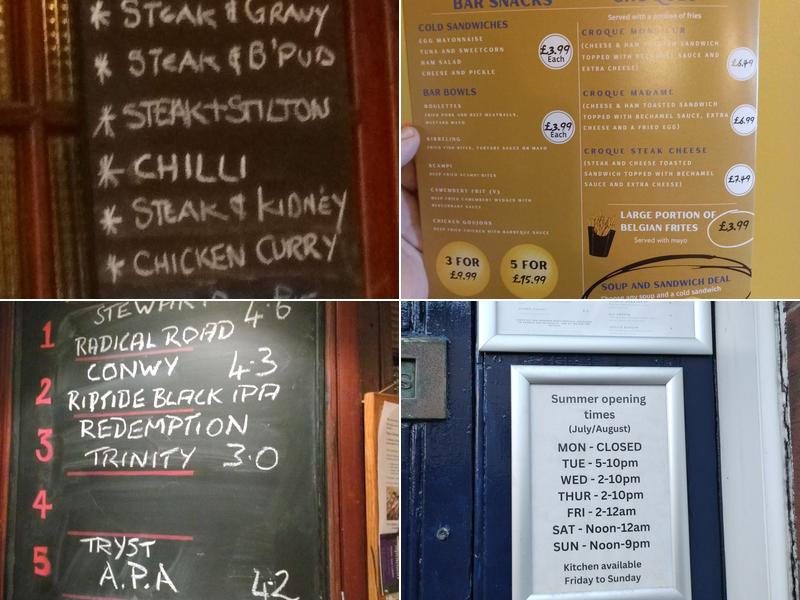 * STEAK & GRAVY
* STEAK & B'PUD
* STEAK + STILTON
* CHILLI
* STEAK & KIDNEY
* CHICKEN CURRY
BAR SNACKS
COLD SANDWICHES
EGG MAYONNAISE
TUNA AND SWEETCORN
HAM SALAD
CHEESE AND PICKLE
£3.99
Each
BAR BOWLS
BOULETTES
FRIED PORK AND BEEF MEATBALLS,
MUSTARD MAYO
£3.99
Each
KIBBELING
FRIED FISH BITES, TARTARE SAUCE OR MAYO
SCAMPI
DEEP FRIED SCAMPI BITES
CAMEMBERT FRIT (V)
DEEP FRIED CAMEMBERT WEDGES WITH
CHICKEN GOUJONS
DEEP FRIED CHICKEN WITH BARBEQUE SAUCE
3 FOR
£9.99
5 FOR
£15.99
Served with a portion of fries
CROQUE MONSIEUR
(CHEESE & HAM TOASTED SANDWICH
TOPPED WITH BECHAMEL SAUCE AND
EXTRA CHEESE)
£6.49
CROQUE MADAME
(CHEESE & HAM TOASTED SANDWICH
TOPPED WITH BECHAMEL SAUCE, EXTRA
CHEESE AND A FRIED EGG)
£6.99
CROQUE STEAK CHEESE
(STEAK AND CHEESE TOASTED
SANDWICH TOPPED WITH BECHAMEL
SAUCE AND EXTRA CHEESE)
£7.49
LARGE PORTION OF
BELGIAN FRITES
Served with mayo
£3.99
SOUP AND SANDWICH DEAL
Choose any soup and a cold sandwich
STEWART 4.6
1 RADICAL ROAD
CONWY 4.3
2 RIPTIDE BLACK IPA
REDEMPTION
3 TRINITY 3.0
4
5 TRYST
A.P.A 4.2
Summer opening
times
(July/August)
MON - CLOSED
TUE - 5-10pm
WED - 2-10pm
THUR - 2-10pm
FRI - 2-12am
SAT - Noon-12am
SUN - Noon-9pm
Kitchen available
Friday to Sunday